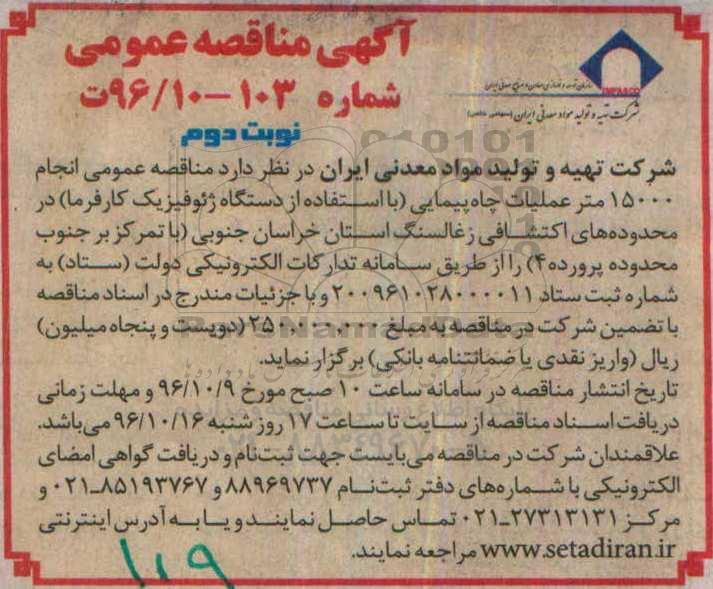 آگهی مناقصه عمومی
شماره ۱۰۳–۹۶/۱۰ت
نوبت دوم
IMPASCO
سازمان توسعه و نوسازی معادن و صنایع معدنی ایران
شرکت تهیه و تولید مواد معدنی ایران (سهامی خاص)
شرکت تهیه و تولید مواد معدنی ایران در نظر دارد مناقصه عمومی انجام
۱۵۰۰۰ متر عملیات چاه‌پیمایی (با استفاده از دستگاه ژئوفیزیک کارفرما) در
محدوده‌های اکتشافی زغالسنگ استان خراسان جنوبی (با تمرکز بر جنوب
محدوده پرورده۴) را از طریق سامانه تدارکات الکترونیکی دولت (ستاد) به
شماره ثبت ستاد ۲۰۰۹۶۱۰۲۸۰۰۰۰۱۱ و با جزئیات مندرج در اسناد مناقصه
با تضمین شرکت در مناقصه به مبلغ ۲۵۰,۰۰۰,۰۰۰ (دویست و پنجاه میلیون)
ریال (واریز نقدی یا ضمانتنامه بانکی) برگزار نماید.
تاریخ انتشار مناقصه در سامانه ساعت ۱۰ صبح مورخ ۹۶/۱۰/۹ و مهلت زمانی
دریافت اسناد مناقصه از سایت تا ساعت ۱۷ روز شنبه ۹۶/۱۰/۱۶ می‌باشد.
علاقمندان شرکت در مناقصه می‌بایست جهت ثبت‌نام و دریافت گواهی امضای
الکترونیکی با شماره‌های دفتر ثبت‌نام ۸۸۹۶۹۷۳۷ و ۸۵۱۹۳۷۶۷-۰۲۱ و
مرکز ۲۷۳۱۳۱۳۱-۰۲۱ تماس حاصل نمایند و یا به آدرس اینترنتی
www.setadiran.ir مراجعه نمایند.
۱۰۹